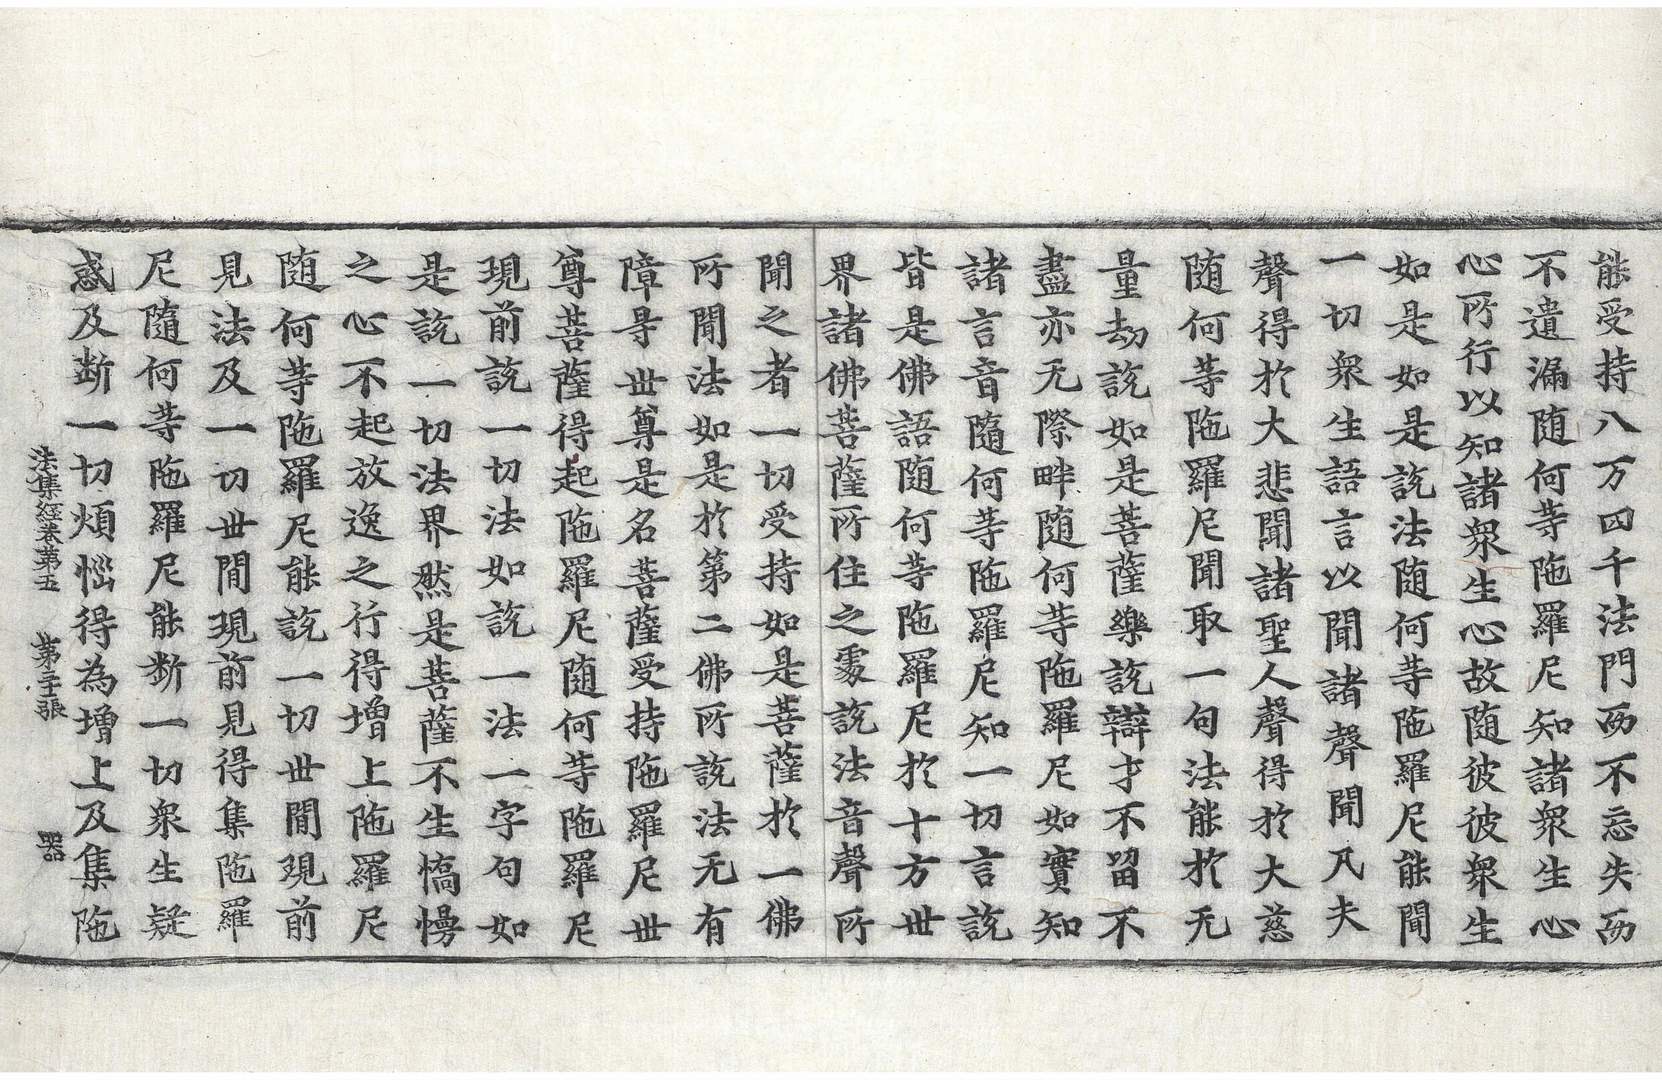 能受持八万四千法門而不忘失而
不遺漏随何等陁羅尼知諸衆生心
心所行以知諸衆生心故随彼彼衆生
如是如是說法随何等陁羅尼能聞
一切衆生語言以聞諸聲聞凡夫
聲得於大悲聞諸聖人聲得於大慈
随何等陁羅尼聞取一句法能於无
量劫說如是菩薩樂說辯才不留不
盡亦无際畔随何等陁羅尼如實知
諸言音隨何等陁羅尼知一切言說
皆是佛語随何等陁羅尼於十方世
界諸佛菩薩所住之處說法音聲所
聞之者一切受持如是菩薩於一佛
所聞法如是於第二佛所說法无有
障㝵世尊是名菩薩受持陁羅尼世
尊菩薩得起陁羅尼随何等陁羅尼
現前說一切法如說一法一字句如
是說一切法界然是菩薩不生憍慢
之心不起放逸之行得增上陁羅尼
随何等陁羅尼能說一切世間現前
見法及一切世間現前見得集陁羅
尼隨何等陁羅尼能断一切衆生疑
惑及断一切煩惱得為增上及集陁
法集経卷第五 第三張 器